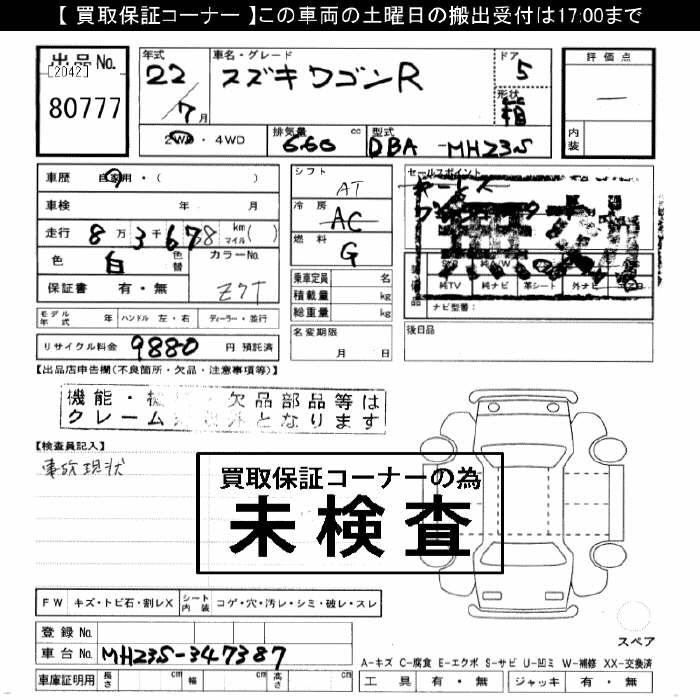 【 買取保証コーナー 】この車両の土曜日の搬出受付は17:00まで
出品 No.
[2042]
80777
年式
22
7 月
車名・グレード
スズキ ワゴンR
ドア
5
形状
箱
評価点
内装
2WD ・ 4WD
排気量
660 cc
型式
DBA - MH23S
車歴 自家用・( )
車検 年 月
走行 8 万 3 千 678 km マイル ( )
色 白 色替
カラーNo.
Z7T
保証書 有・無
シフト
AT
冷房
AC
燃料
G
乗車定員 名
積載量 kg
総重量 kg
セールスポイント
純TV 純ナビ 革シート 外ナビ
ナビ型番:
モデル年式 年 ハンドル 左・右 ディーラー・並行
リサイクル料金 9880 円 預託済
名変期限
月 日
後日品
【出品店申告欄(不良箇所・欠品・注意事項等)】
機能・ 欠品部品等は
クレーム となります
【検査員記入】
事故現状
買取保証コーナーの為
未検査
FW キズ・トビ石・割レX シート内装 コゲ・穴・汚レ・シミ・破レ・スレ
登録 No.
車台 No. MH23S-347387
車庫証明用 長さ cm 幅 cm 高さ cm
スペア
A-キズ C-腐食 E-エクボ S-サビ U-凹ミ W-補修 XX-交換済
工具 有・無 ジャッキ 有・無